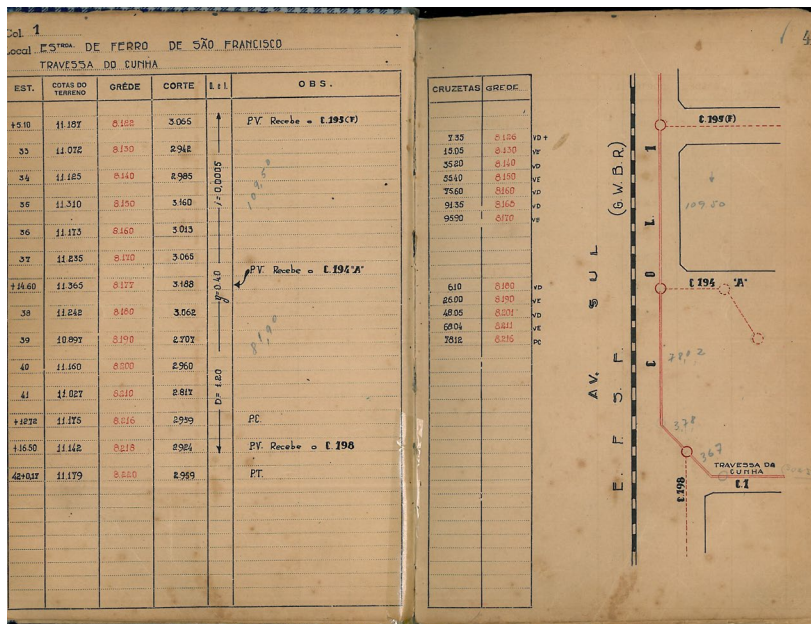 Col. 1
Local ESTRDA. DE FERRO DE SÃO FRANCISCO
TRAVESSA DO CUNHA
EST. COTAS DO TERRENO GRÉDE CORTE D. e I. OBS.
+5.10 11.187 8.122 3.065 P.V. Recebe o C.195(F)
33 11.072 8.130 2.942
34 11.125 8.140 2.985
35 11.310 8.150 3.160
36 11.173 8.160 3.013
37 11.235 8.170 3.065
+14.60 11.365 8.177 3.188 P.V. Recebe o C.194"A"
38 11.242 8.180 3.062
39 10.897 8.190 2.707
40 11.160 8.200 2.960
41 11.027 8.210 2.817
+12.72 11.175 8.216 2.959 P.C.
+16.50 11.142 8.218 2.924 P.V. Recebe o C.198
42+0,17 11.179 8.220 2.959 P.T.
I=0,0005
y=0.40
D=1.20
109,50
CRUZETAS GREDE
7.35 8.126 VD+
15.05 8.130 VE
35.20 8.140 VD
55.40 8.150 VE
75.60 8.160 VD
91.35 8.168 VD
95.90 8.170 VE
6.10 8.180 VD
26.00 8.190 VE
48.05 8.201 VD
68.04 8.211 VE
78.12 8.216 PC
4
C.195(F)
109.50
C.194 "A"
COL. 1
AV. SUL
E. F. S. F. (G.W.B.R)
3,78
367
TRAVESSA DA CUNHA
C.1
C.198